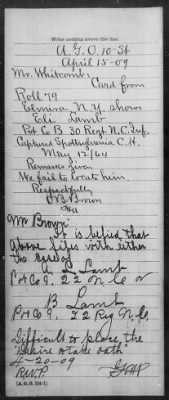 Write nothing above this line.
A. G. O. 10-St
April 15-09
Mr. Whitcomb,
Card from
Roll 79
Elmira N.Y. shows
Eli Lamb
Pvt Co B 30 Regt N.C. Inf,
Captured Spottsylvania C.H.
May 12/64
Remarks given
We fail to locate him.
Respectfully
Brown
Mr Brown:
It is belied that
above files with either
the cards of
A L Lamb
Pvt Co G, 22 N.C. or
B Lamb
Pvt Co G, 22 Reg N.C.
Difficult to place the
desire & take oath
4-20-09
[A. G. O. 124-1]